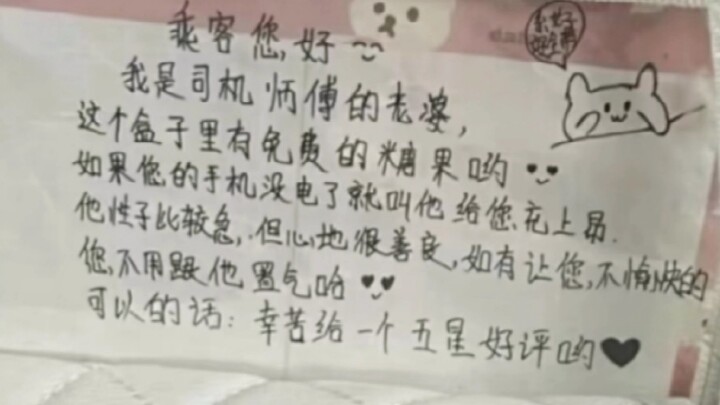 乘客您,好
我是司机师傅的老婆,
这个盒子里有免费的糖果哟
如果您的手机没电了就叫他给您充上昂.
他性子比较急,但心地很善良,如有让您,不愉快的
您,不用跟他置气哈
可以的话:幸苦给一个五星好评哟♥